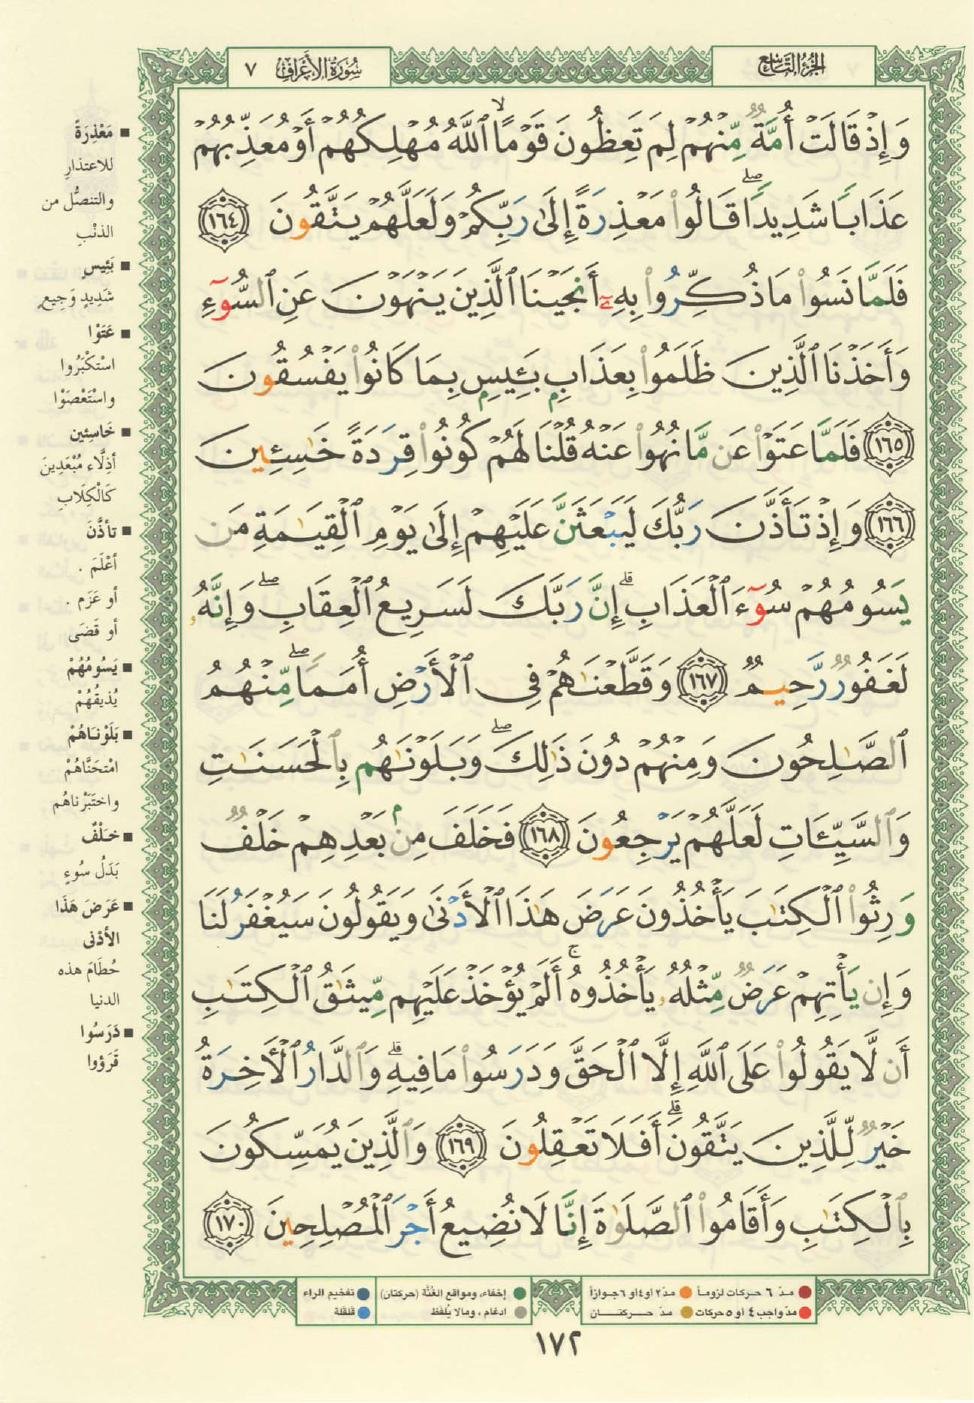 الجزء التاسع
سورة الأعراف ٧
وَإِذْ قَالَتْ أُمَّةٌ مِّنْهُمْ لِمَ تَعِظُونَ قَوْمًا ۙ ٱللَّهُ مُهْلِكُهُمْ أَوْ مُعَذِّبُهُمْ
عَذَابًا شَدِيدًا ۖ قَالُوا۟ مَعْذِرَةً إِلَىٰ رَبِّكُمْ وَلَعَلَّهُمْ يَتَّقُونَ ١٦٤
فَلَمَّا نَسُوا۟ مَا ذُكِّرُوا۟ بِهِۦٓ أَنجَيْنَا ٱلَّذِينَ يَنْهَوْنَ عَنِ ٱلسُّوٓءِ
وَأَخَذْنَا ٱلَّذِينَ ظَلَمُوا۟ بِعَذَابٍۭ بَـِٔيسٍۭ بِمَا كَانُوا۟ يَفْسُقُونَ
١٦٥ فَلَمَّا عَتَوْا۟ عَن مَّا نُهُوا۟ عَنْهُ قُلْنَا لَهُمْ كُونُوا۟ قِرَدَةً خَـٰسِـِٔينَ
١٦٦ وَإِذْ تَأَذَّنَ رَبُّكَ لَيَبْعَثَنَّ عَلَيْهِمْ إِلَىٰ يَوْمِ ٱلْقِيَـٰمَةِ مَن
يَسُومُهُمْ سُوٓءَ ٱلْعَذَابِ ۗ إِنَّ رَبَّكَ لَسَرِيعُ ٱلْعِقَابِ ۖ وَإِنَّهُۥ
لَغَفُورٌ رَّحِيمٌ ١٦٧ وَقَطَّعْنَـٰهُمْ فِى ٱلْأَرْضِ أُمَمًا ۖ مِّنْهُمُ
ٱلصَّـٰلِحُونَ وَمِنْهُمْ دُونَ ذَٰلِكَ ۖ وَبَلَوْنَـٰهُم بِٱلْحَسَنَـٰتِ
وَٱلسَّيِّـَٔاتِ لَعَلَّهُمْ يَرْجِعُونَ ١٦٨ فَخَلَفَ مِنۢ بَعْدِهِمْ خَلْفٌ
وَرِثُوا۟ ٱلْكِتَـٰبَ يَأْخُذُونَ عَرَضَ هَـٰذَا ٱلْأَدْنَىٰ وَيَقُولُونَ سَيُغْفَرُ لَنَا
وَإِن يَأْتِهِمْ عَرَضٌ مِّثْلُهُۥ يَأْخُذُوهُ ۚ أَلَمْ يُؤْخَذْ عَلَيْهِم مِّيثَـٰقُ ٱلْكِتَـٰبِ
أَن لَّا يَقُولُوا۟ عَلَى ٱللَّهِ إِلَّا ٱلْحَقَّ وَدَرَسُوا۟ مَا فِيهِ ۗ وَٱلدَّارُ ٱلْـَٔاخِرَةُ
خَيْرٌ لِّلَّذِينَ يَتَّقُونَ ۗ أَفَلَا تَعْقِلُونَ ١٦٩ وَٱلَّذِينَ يُمَسِّكُونَ
بِٱلْكِتَـٰبِ وَأَقَامُوا۟ ٱلصَّلَوٰةَ إِنَّا لَا نُضِيعُ أَجْرَ ٱلْمُصْلِحِينَ ١٧٠
■ مَعْذِرَةً
للاعتذارِ
والتنصُّل من
الذنْبِ
■ بَئِيس
شَدِيدٍ وَجِيعٍ
■ عَتَوْا
اسْتكْبَرُوا
واسْتَعْصَوْا
■ خَاسِئِين
أذِلَّاء مُبْعَدِينَ
كَالْكِلَابِ
■ تأذَّنَ
أعْلَمَ .
أو عَزَم .
أو قَضَى
■ يَسُومُهُمْ
يُذيقُهُمْ
■ بَلَوْنَاهُمْ
امْتَحَنَّاهُمْ
واختَبَرْناهُم
■ خَلْفٌ
بَدَلُ سُوءٍ
■ عَرَضَ هَذَا
الأدْنى
حُطَامَ هذه
الدنيا
■ دَرَسُوا
قَرَؤوا
مدّ ٦ حركات لزوماً
مدّ ٢ او ٤ او ٦ جوازاً
مدّ واجب ٤ او ٥ حركات
مدّ حركتان
إخفاء، ومواقع الغُنَّة (حركتان)
ادغام ، ومالا يُلفظ
تفخيم الراء
قلقلة
١٧٢